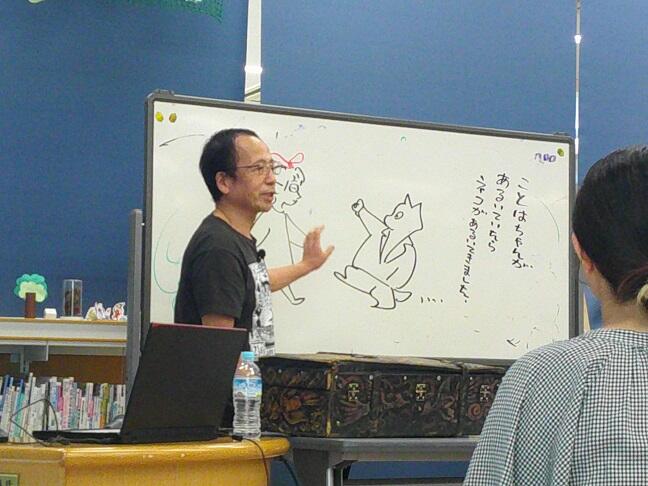 ことはちゃんが
あるいていたら
シャツがあるいてきました。